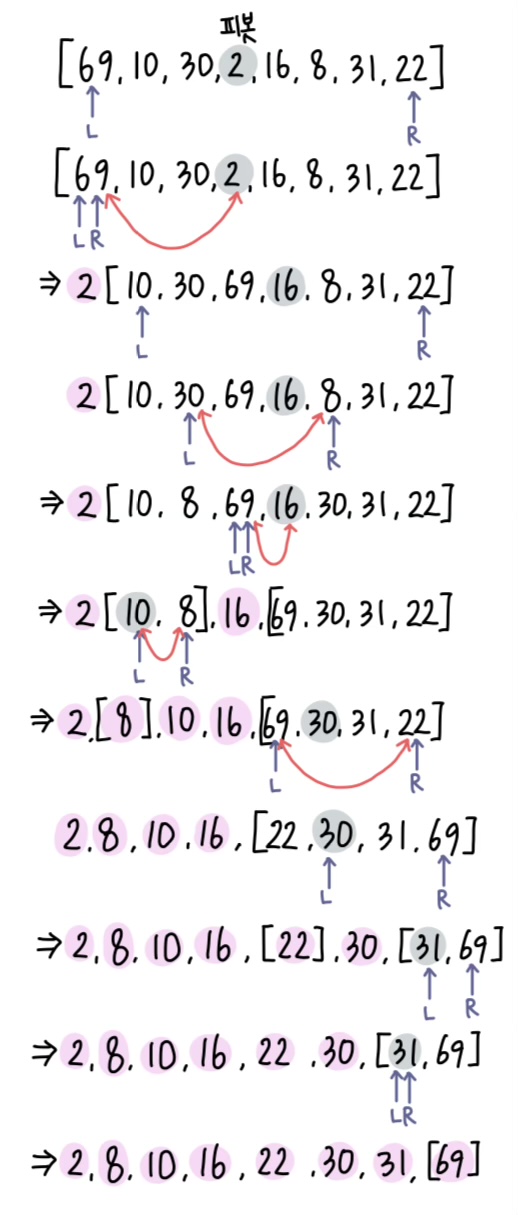 피봇
[69, 10, 30, 2, 16, 8, 31, 22]
L R
[69, 10, 30, 2, 16, 8, 31, 22]
L R
⇒ 2 [10, 30, 69, 16, 8, 31, 22]
L R
2 [10, 30, 69, 16, 8, 31, 22]
L R
⇒ 2 [10, 8, 69, 16, 30, 31, 22]
L R
⇒ 2 [10, 8], 16, [69, 30, 31, 22]
L R
⇒ 2, [8], 10, 16, [69, 30, 31, 22]
L R
2, 8, 10, 16, [22, 30, 31, 69]
L R
⇒ 2, 8, 10, 16, [22], 30, [31, 69]
L R
⇒ 2, 8, 10, 16, 22, 30, [31, 69]
L R
⇒ 2, 8, 10, 16, 22, 30, 31, [69]